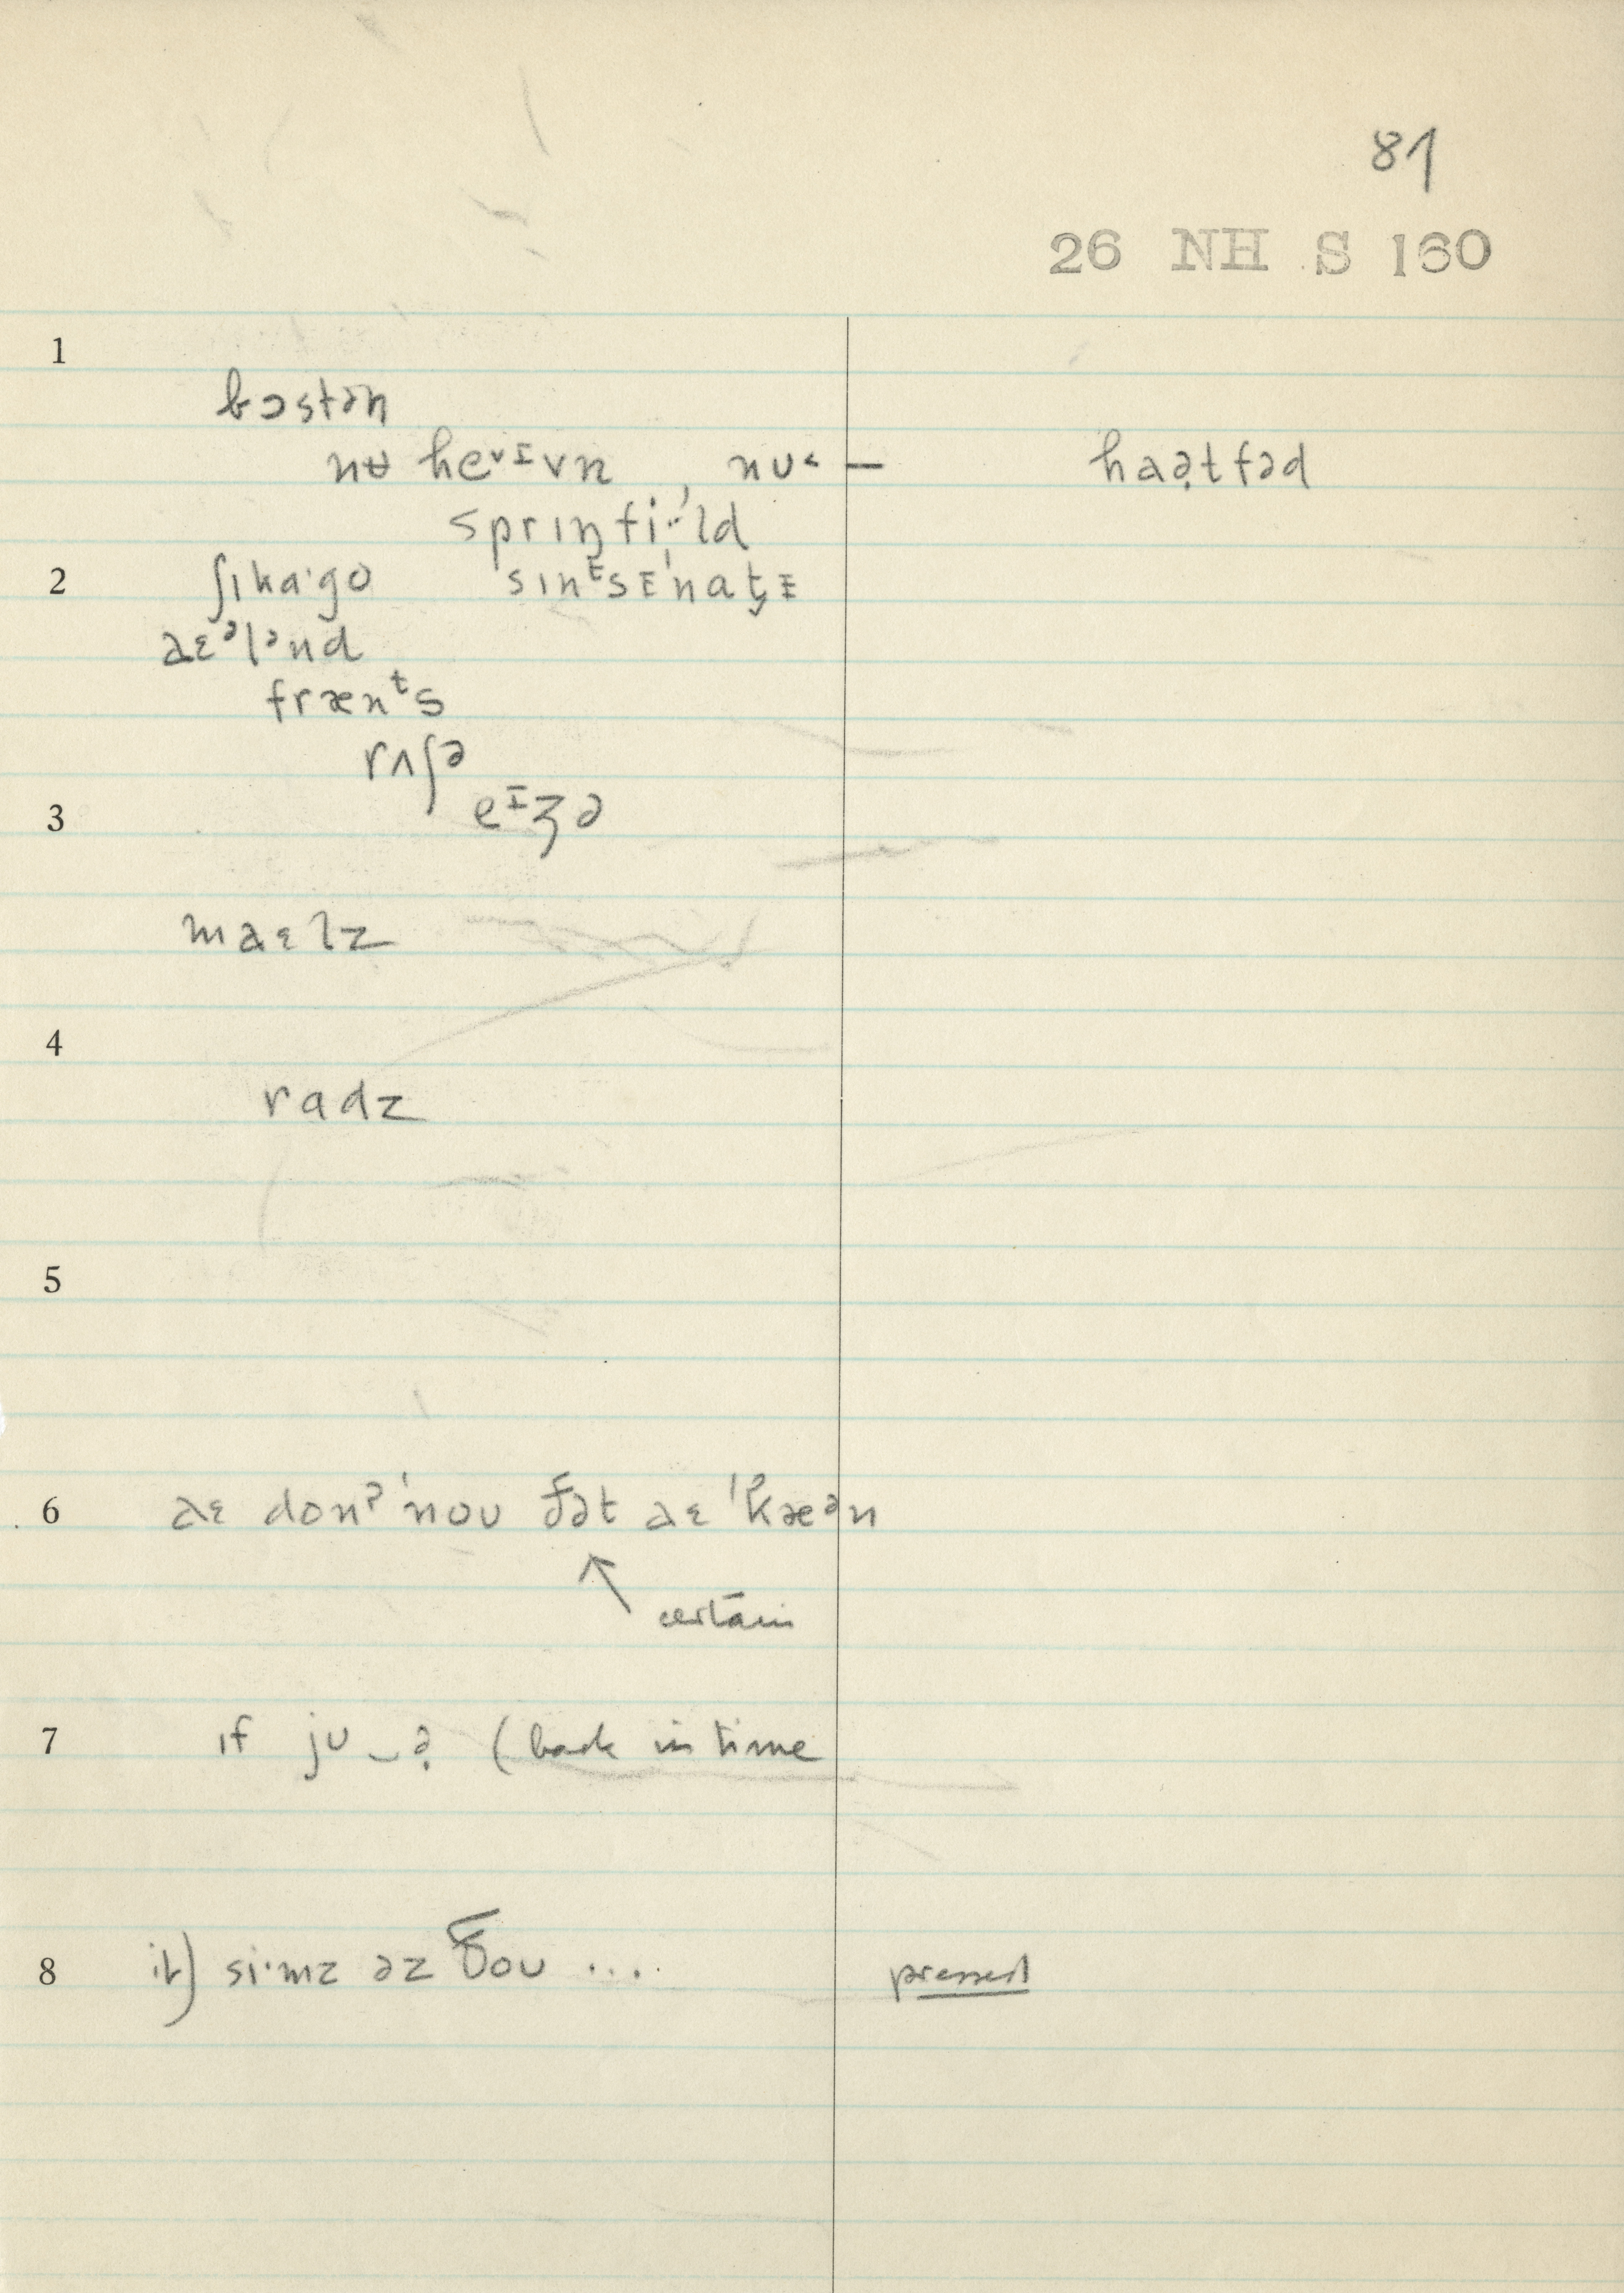 81
26 NH S 160
1
bɔstən
nʉ heᵛᴵvn , nᴜ˂ — haə̣tfəd
sprɪŋfi·ˈld
2 ʃɪka·go ˈsɪnᵗsᵻˈnat̬ᵻ
aɛᵊlənd
frænᵗs
rʌʃə
3 eᴵʒə
maɛlz
4
radz
5
6 aɛ donˀ ˈnoᴜ ðət aɛ ˈkæᵊn
certain
7 ɪf jᴜ ‿ə̣ (back in time
8 it) si·mz əz ðoᴜ .... pressed